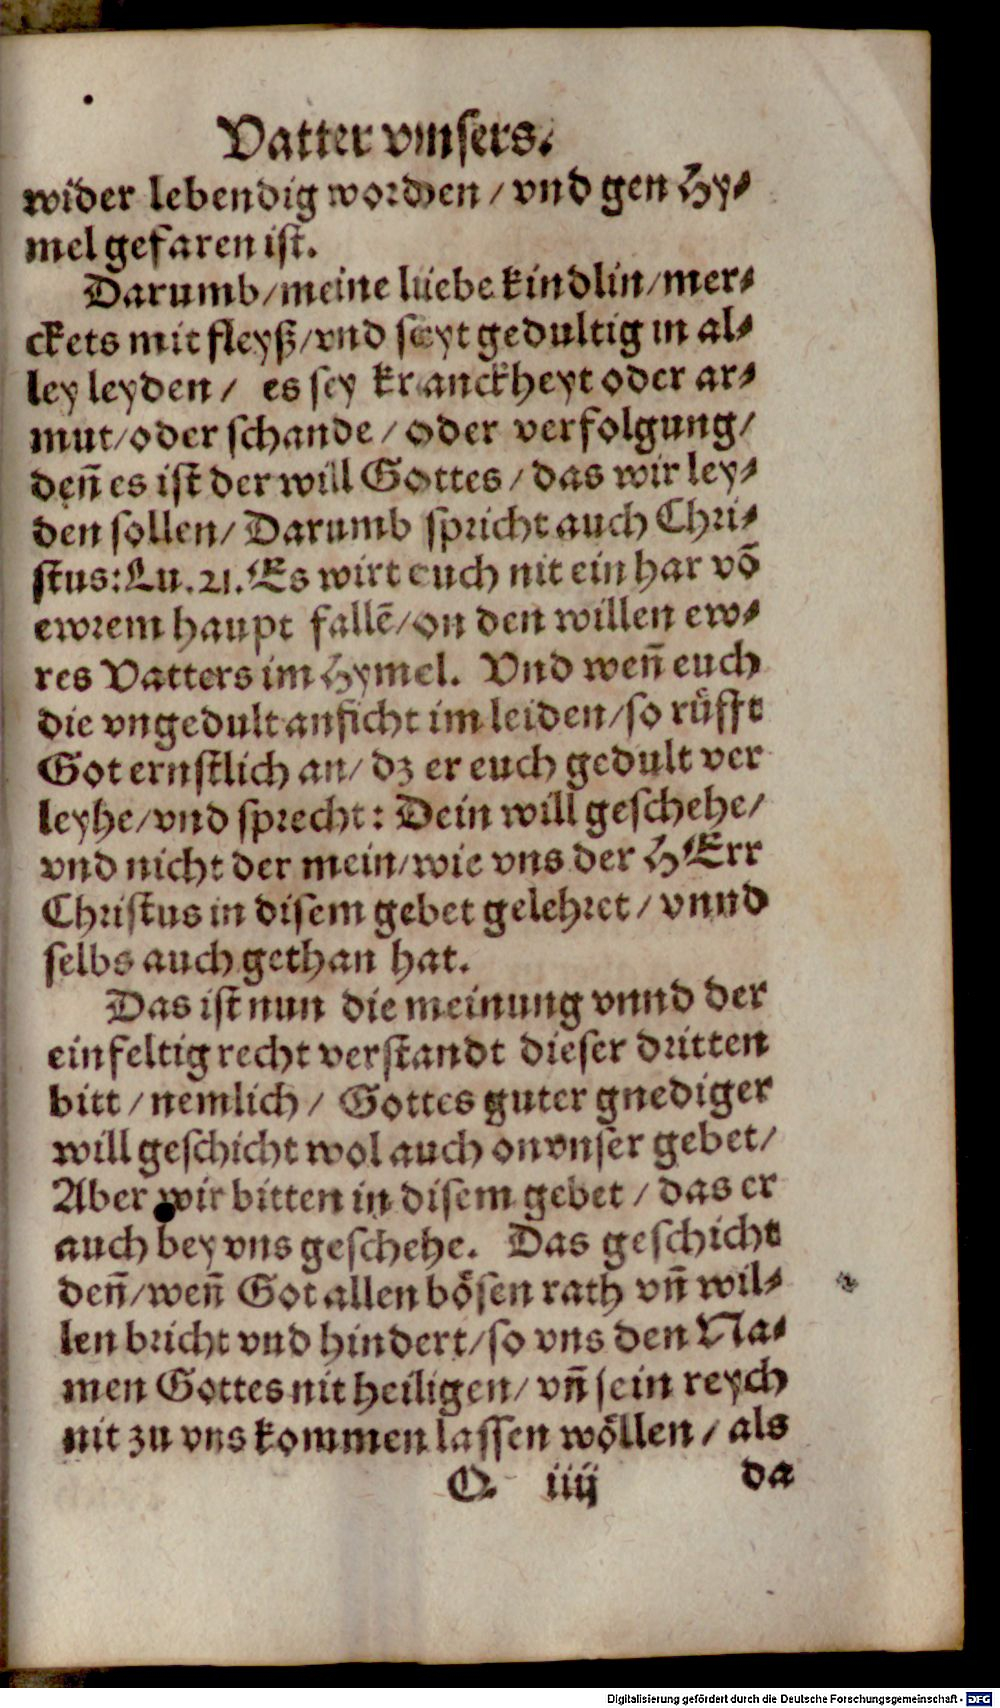 Vatter vnsers.
wider lebendig worden / vnd gen Hy⸗
mel gefaren ist.
Darumb / meine liebe kindlin / mer⸗
ckets mit fleyß / vnd seyt gedultig in al⸗
ley leyden / es sey kranckheyt oder ar⸗
mut / oder schande / oder verfolgung /
deñ es ist der will Gottes / das wir ley⸗
den sollen / Darumb spricht auch Chri⸗
stus: Lu. 21. Es wirt euch nit ein har võ
ewrem haupt fallẽ / on den willen ew⸗
res Vatters im Hymel. Vnd weñ euch
die vngedult anficht im leiden / so rüfft
Got ernstlich an / dz er euch gedult ver
leyhe / vnd sprecht: Dein will geschehe /
vnd nicht der mein / wie vns der HErr
Christus in disem gebet gelehret / vnnd
selbs auch gethan hat.
Das ist nun die meinung vnnd der
einfeltig recht verstandt dieser dritten
bitt / nemlich / Gottes guter gnediger
will geschicht wol auch on vnser gebet /
Aber wir bitten in disem gebet / das er
auch bey vns geschehe. Das geschicht
deñ / weñ Got allen bösen rath vñ wil⸗
len bricht vnd hindert / so vns den Na⸗
men Gottes nit heiligen / vñ sein reych
nit zu vns kommen lassen wöllen / als
O. iiij da
Digitalisierung gefördert durch die Deutsche Forschungsgemeinschaft - DFG